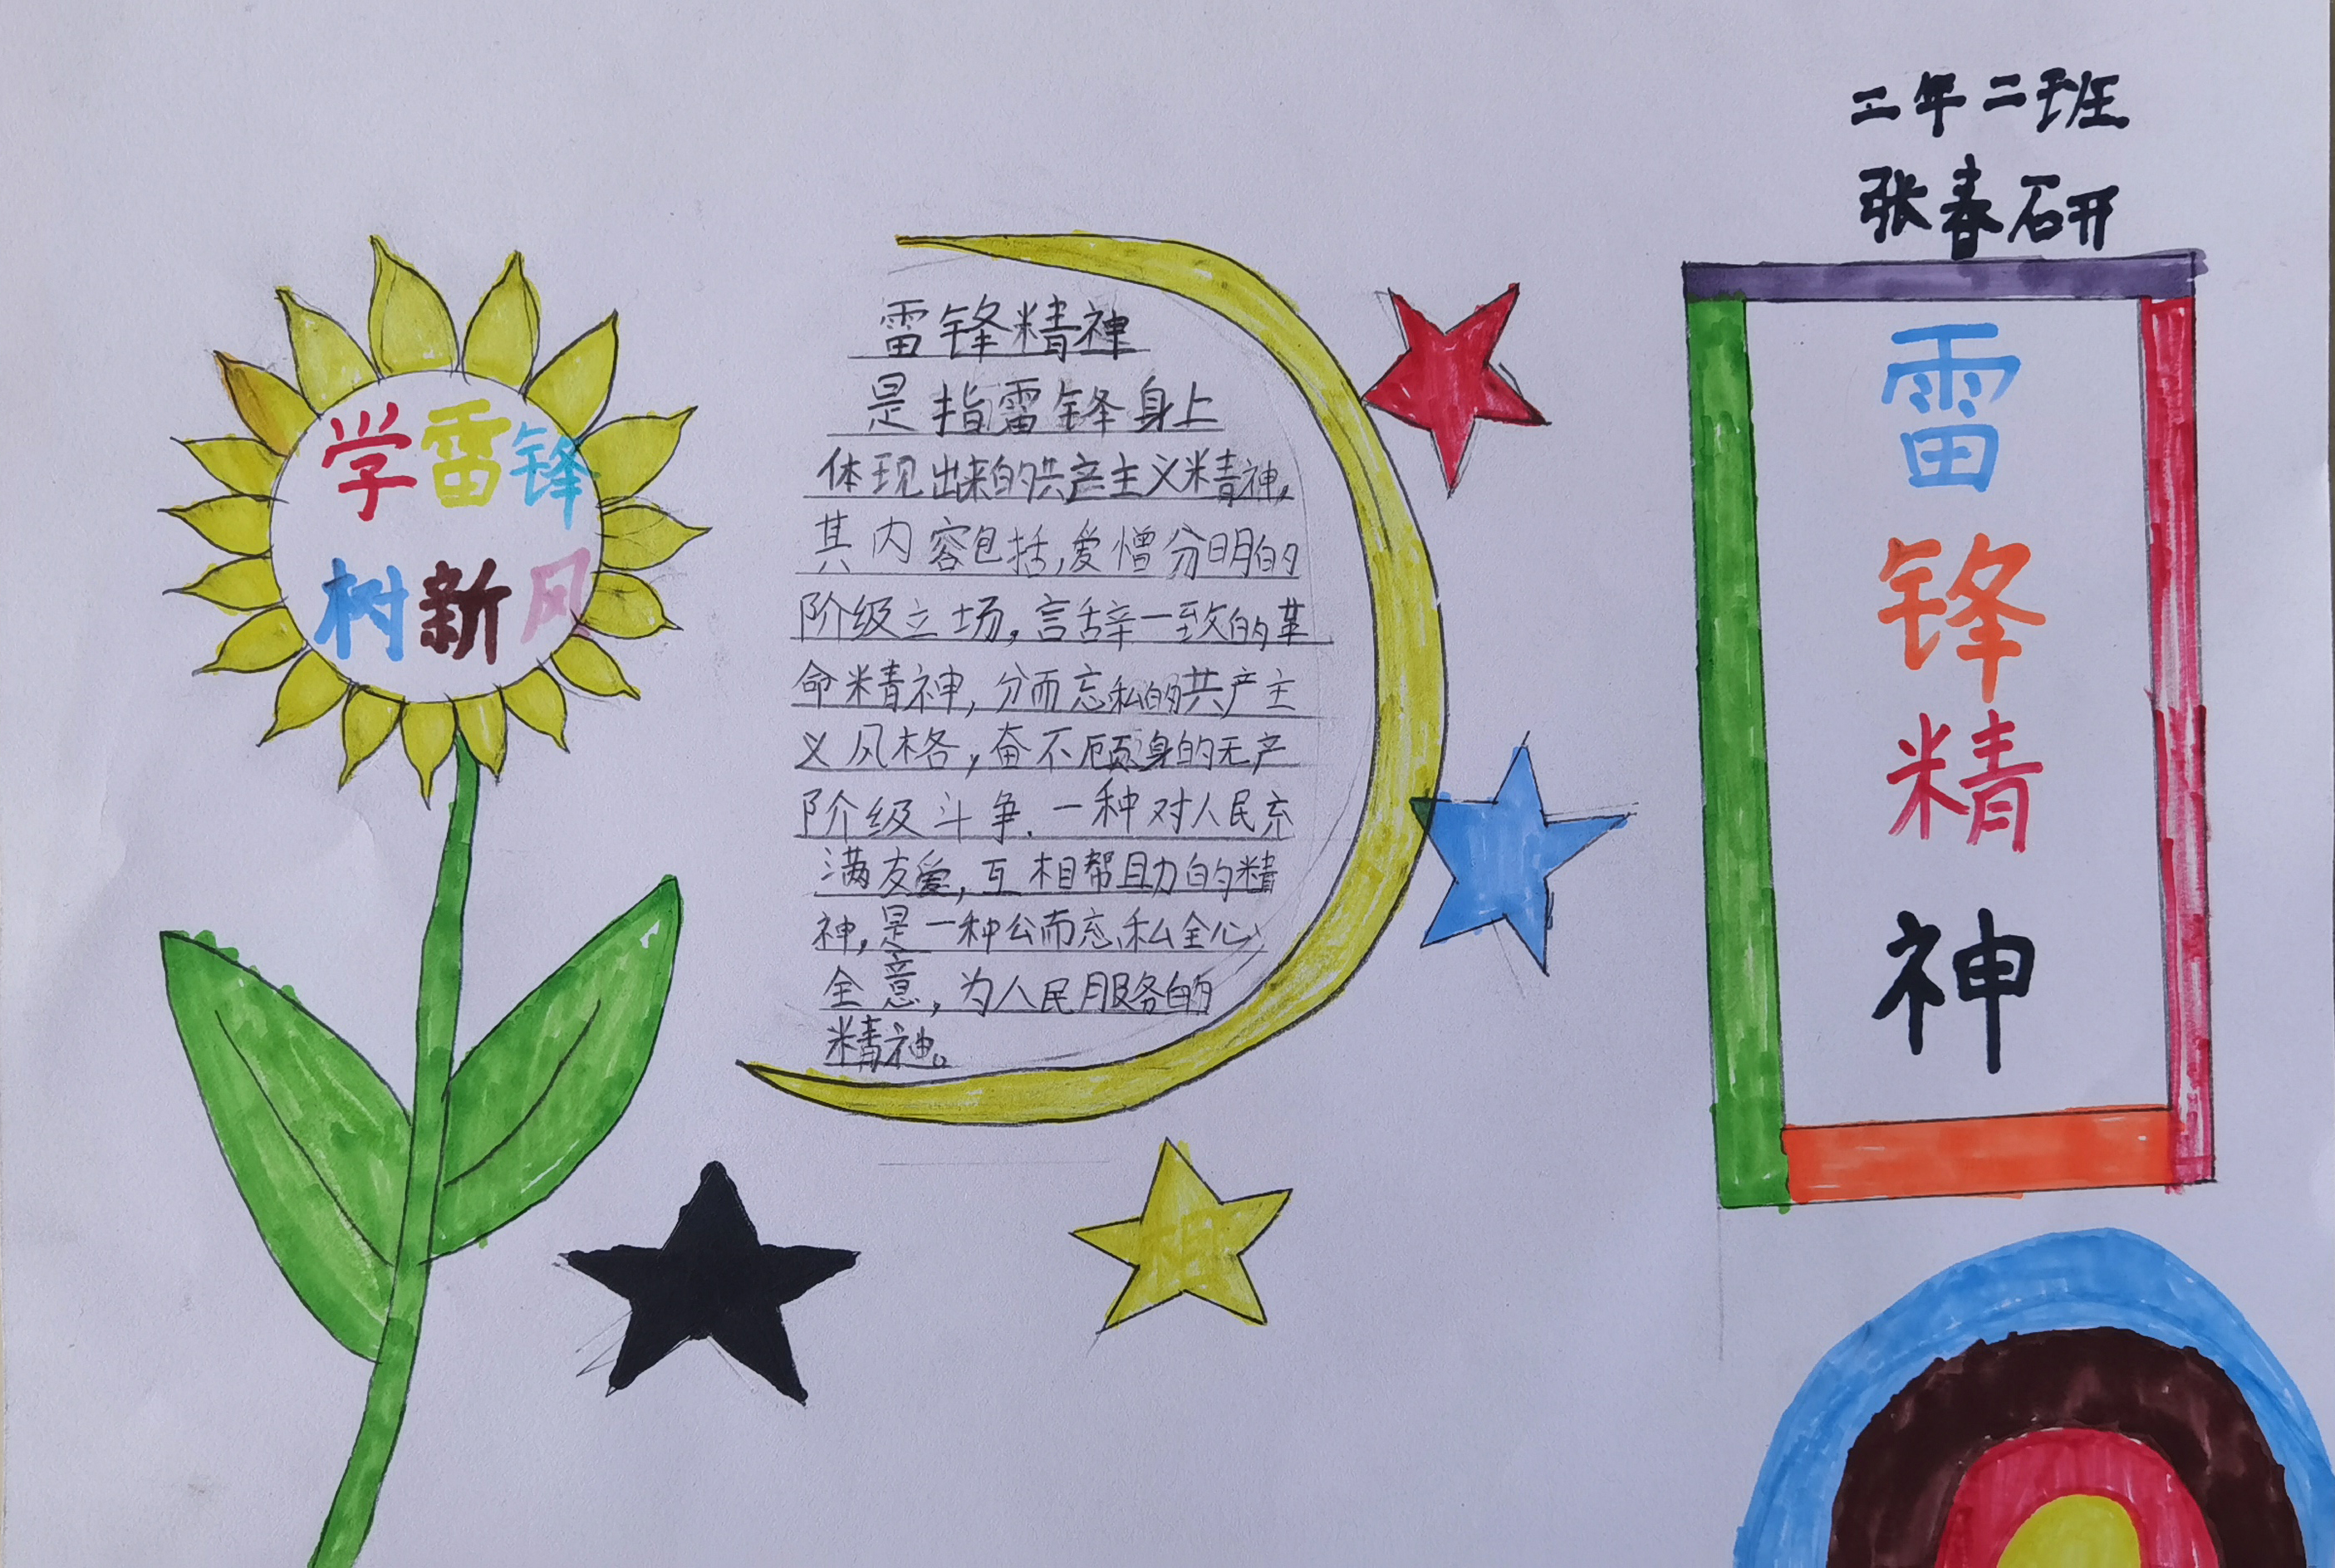 学雷锋
树新风
雷锋精神
是指雷锋身上
体现出来的共产主义精神,
其内容包括,爱憎分明的
阶级立场,言辞一致的革
命精神,分而忘私的共产主
义风格,奋不顾身的无产
阶级斗争.一种对人民充
满友爱,互相帮助的精
神,是一种公而忘私全心
全意,为人民服务的
精神。
二年二班
张春研
雷锋精神